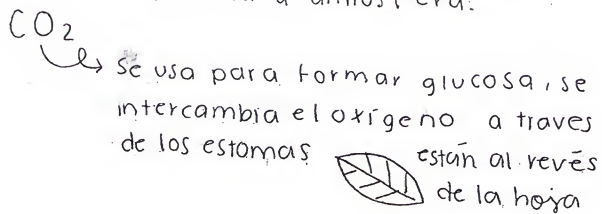 a atmósfera.
CO2
se usa para formar glucosa, se
intercambia el oxígeno a traves
de los estomas están al revés
de la hoja